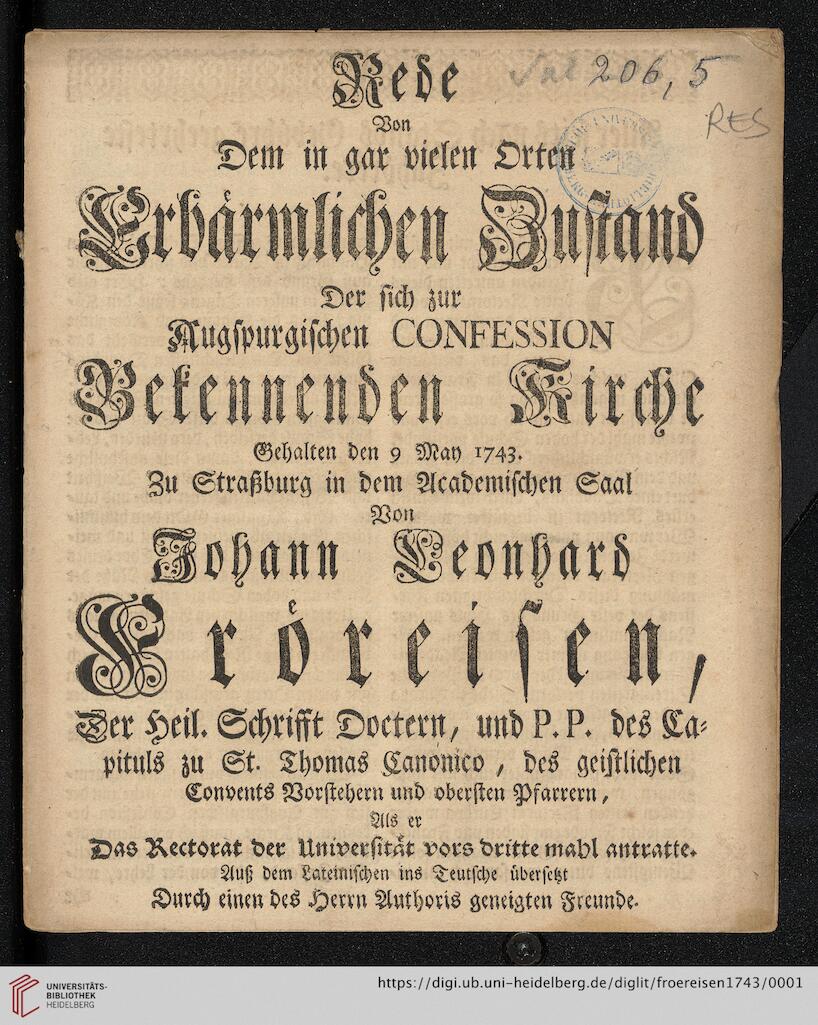 Sal 206, 5
RES
Rede
Von
Dem in gar vielen Orten
Erbärmlichen Zustand
Der sich zur
Augspurgischen CONFESSION
Bekennenden Kirche
Gehalten den 9 May 1743.
Zu Straßburg in dem Academischen Saal
Von
Johann Leonhard
Fröreisen,
Der Heil. Schrifft Doctern, und P. P. des Ca-
pituls zu St. Thomas Canonico, des geistlichen
Convents Vorstehern und obersten Pfarrern,
Als er
Das Rectorat der Universität vors dritte mahl antratte.
Auß dem Lateinischen ins Teutsche übersetzt
Durch einen des Herrn Authoris geneigten Freunde.
UNIVERSITÄTS-
BIBLIOTHEK
HEIDELBERG
https://digi.ub.uni-heidelberg.de/diglit/froereisen1743/0001